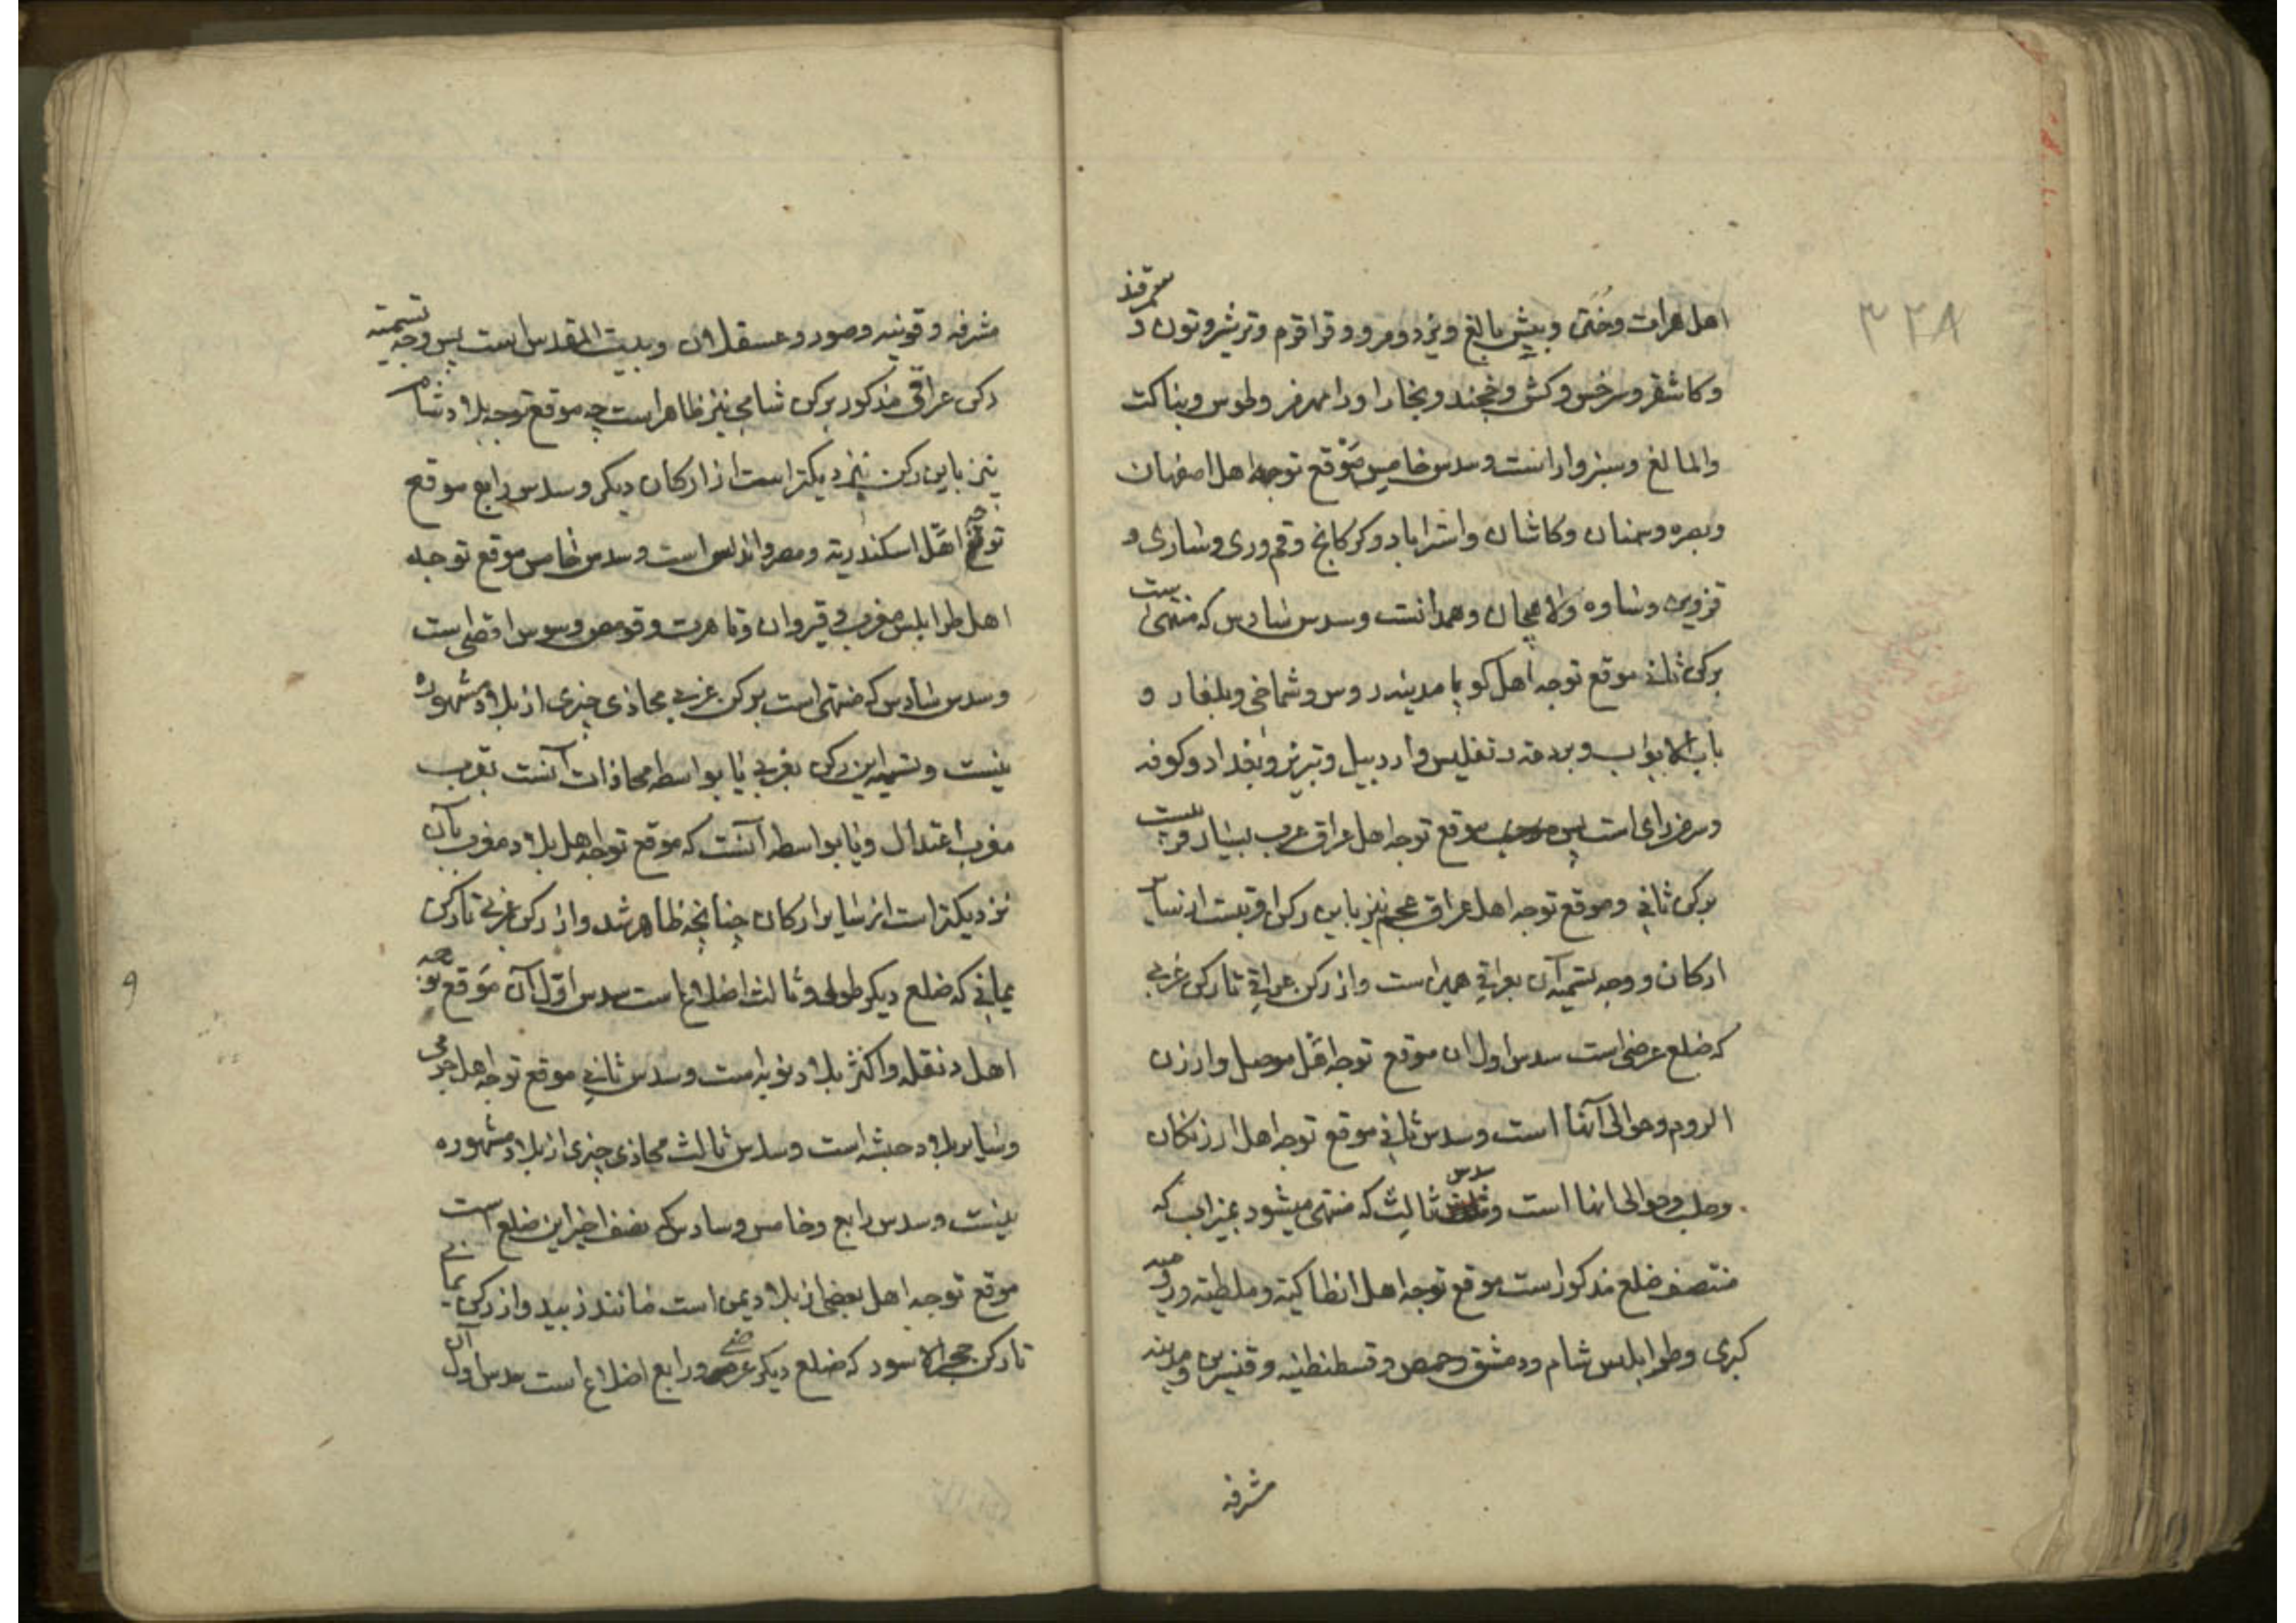 ۳۲۸
اهل هرات وختن وبیش بالغ ویزد ومرو وقراقوم وترشیز وتون و سمرقند
وکاشغر وسرخس وکش وخجند وبخارا ورامهرمز وطوس وبناکت
والمالغ وسبزوار است وسدس خامس موقع توجه اهل اصفهان
وبصره وسمنان وکاشان واستراباد وکرکانج وقم وری وساری و
قزوین وساوه ولاهیجان وهمدانست وسدس سادس که منتهی است
برکن ثانی موقع توجه اهل کویا مدینه روس وشماخی وبلغار و
باب الابواب وبردعه وتفلیس واردبیل وتبریز وبغداد وکوفه
وسرمن رای است پس موقع توجه اهل عراق عرب بسیار قریبست
برکن ثانی وموقع توجه اهل عراق عجم نیز باین رکن اقربست از سایر
ارکان ووجه تسمیه آن بعراقی همین است واز رکن عراقی تا رکن غربی
که ضلع عرضی است سدس اول ان موقع توجه اهل موصل وارزن
الروم وحوالی آنها است وسدس ثانی موقع توجه اهل ارزنکان
وحلب وحوالی انها است وسدس ثالث که منتهی میشود بمیزاب که
منتصف ضلع مذکور است موقع توجه اهل انطاکیه وملطیه ورومیه
کبری وطرابلس شام ودمشق وحمص وقسطنطنیه وقنسرین ومدینه
مشرفه
مشرفه وقونیه وصور وعسقلان وبیت المقدس است پس وجه تسمیه
رکن عراقی مذکور برکن شامی نیز ظاهر است چه موقع توجه بلاد شام
نیز باین رکن نزدیکتر است از ارکان دیکر وسدس رابع موقع
توجه اهل اسکندریه ومصر واندلس است وسدس خامس موقع توجه
اهل طرابلس مغرب وقیروان وتاهرت وقومص وسوس اقصی است
وسدس سادس که منتهی است برکن غربی محاذی چیزی از بلاد مشهوره
نیست وتسمیه این رکن بغربی یا بواسطه محاذات آنست بقرب
مغرب اعتدال ویا بواسطه آنست که موقع توجه اهل بلاد مغرب بآن
نزدیکتر است از سایر ارکان چنانچه ظاهر شد واز رکن غربی تا رکن
یمانی که ضلع دیکر طولی وثالث اضلاع است سدس اول آن موقع توجه
اهل دنقله واکثر بلاد نوبه است وسدس ثانی موقع توجه اهل جرمی
وسایر بلاد حبشه است وسدس ثالث محاذی چیزی از بلاد مشهوره
نیست وسدس رابع وخامس وسادس که نصف اخیر این ضلع است
موقع توجه اهل بعضی از بلاد یمن است مانند زبید واز رکن یمانی
تا رکن حجر الاسود که ضلع دیکر عرضی ورابع اضلاع است سدس اول آن